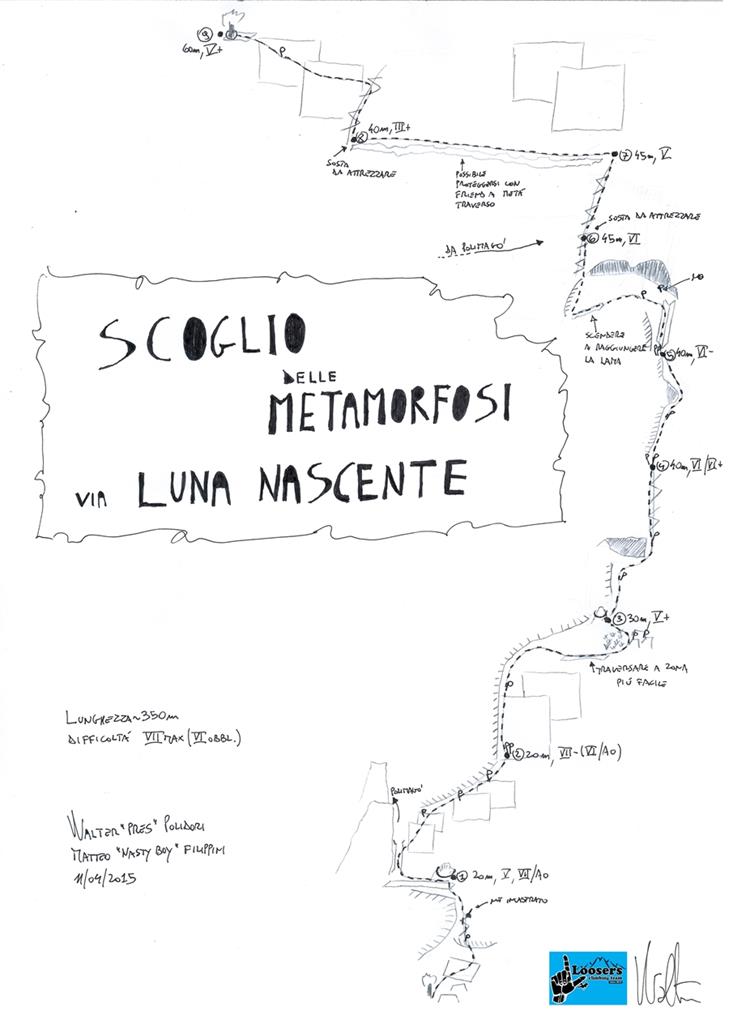 9
60m, V+
P
8 40m, III+
SOSTA
DA ATTREZZARE
POSSIBILE
PROTEGGERSI CON
FRIEND A METÀ
TRAVERSO
7 45m, V
SOSTA DA ATTREZZARE
6 45m, VI
DA POLIMAGÒ
P
P
SCENDERE
A RAGGIUNGERE
LA LAMA
5 40m, VI-
SCOGLIO
DELLE
METAMORFOSI
VIA LUNA NASCENTE
P
P P
4 40m, VI/VI+
P
P
3 30m, V+
P P
TRAVERSARE A ZONA
PIÙ FACILE
P
LUNGHEZZA ~350m
DIFFICOLTÀ VII MAX (VI OBBL.)
PP
2 20m, VII- (VI/A0)
POLIMAGÒ
P P P
WALTER "PRES" POLIDORI
MATTEO "NASTY BOY" FILIPPINI
11/04/2015
1 20m, V, VII/A0
P
Loosers
climbing team
Walter